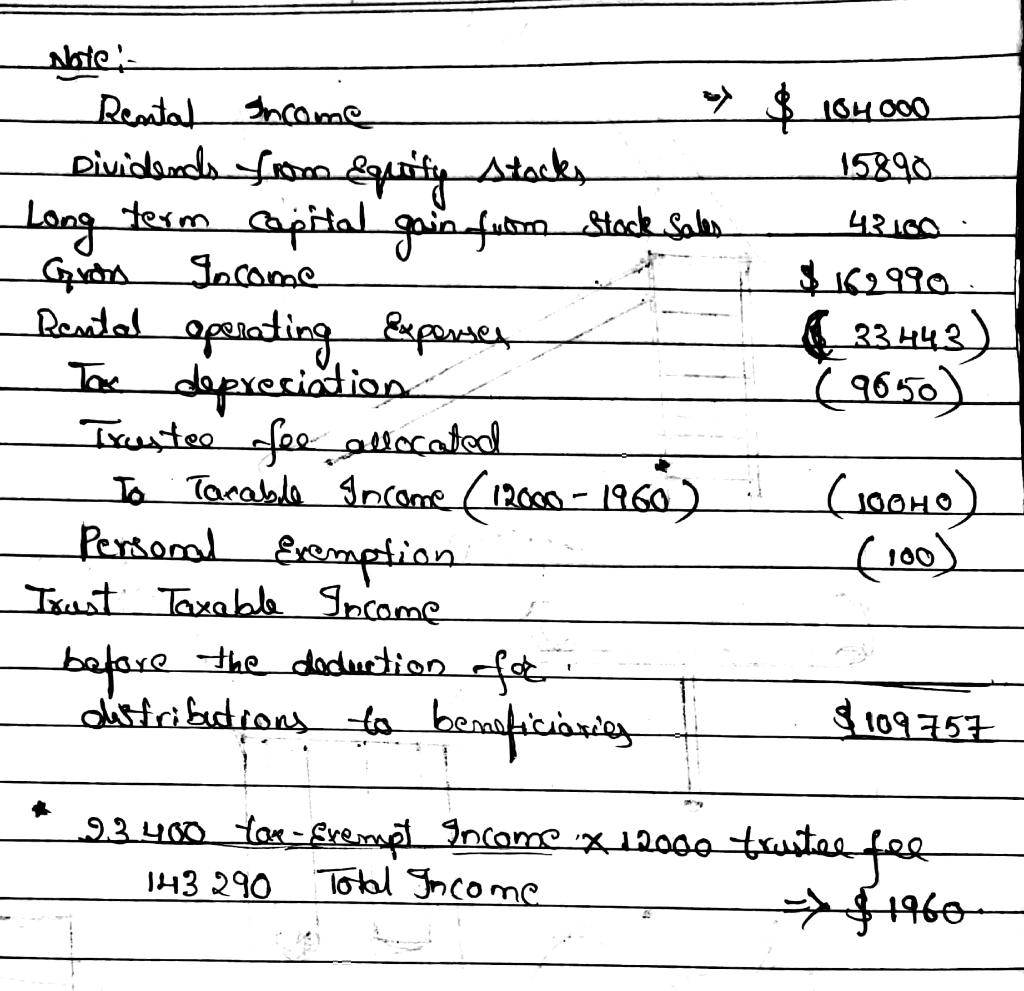 Note:-
Rental Income => $ 104000
Dividends from Equity Stocks 15890
Long term capital gain from Stock Sales 43100
Gross Income $ 162990
Rental operating Expenses ( 33443)
Tax depreciation ( 9650)
Trustee fee allocated
To Taxable Income (12000 - 1960)* (10040)
Personal Exemption (100)
Trust Taxable Income
before the deduction for
distributions to beneficiaries $109757
* 23400 tax-Exempt Income x 12000 trustee fee
143290 Total Income => $ 1960